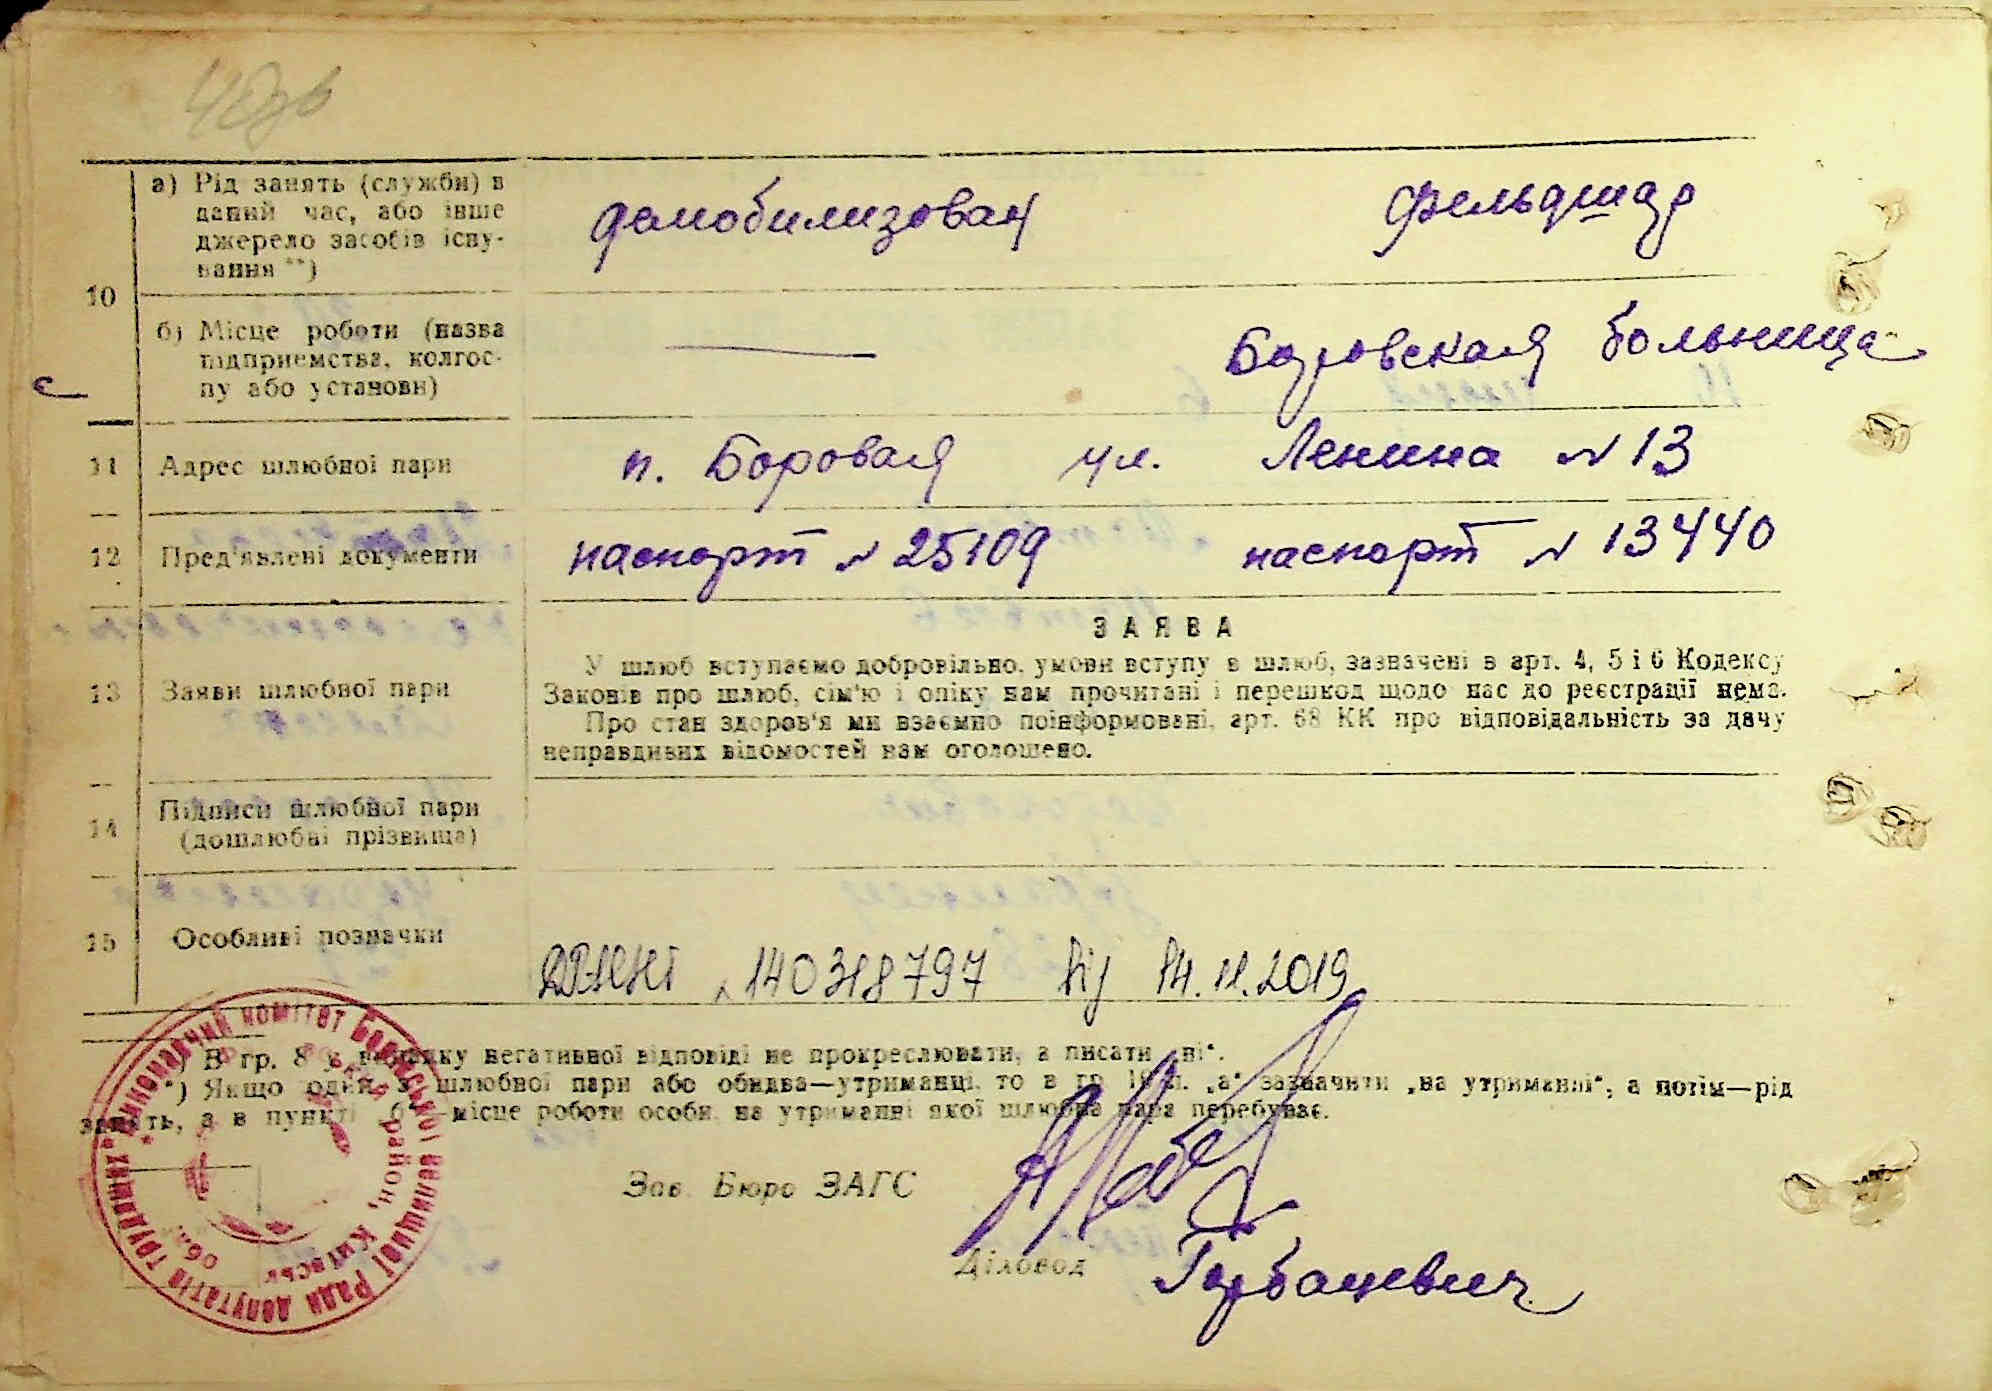 10
а) Рід занять (служби) в
даний час, або інше
джерело засобів існу-
вання **)
демобилизован
Фельдшер
б) Місце роботи (назва
підприємства, колгос-
пу або установи)
Боровская больница
11
Адрес шлюбної пари
п. Боровая ул. Ленина № 13
12
Пред'явлені документи
паспорт № 25109
паспорт № 13440
13
Заяви шлюбної пари
ЗАЯВА
У шлюб вступаємо добровільно, умови вступу в шлюб, зазначені в арт. 4, 5 і 6 Кодексу
Законів про шлюб, сім'ю і опіку нам прочитані і перешкод щодо нас до реєстрації нема.
Про стан здоров'я ми взаємно поінформовані, арт. 68 КК про відповідальність за дачу
неправдивих відомостей нам оголошено.
14
Підписи шлюбної пари
(дошлюбні прізвища)
15
Особливі позначки
140318797 від 14.11.2019
*) В гр. 8 у випадку негативної відповіді не прокреслювати, а писати „ні“.
**) Якщо один з шлюбної пари або обидва—утриманці, то в гр 10 п. „а“ зазначити „на утриманні“, а потім—рід
занять, а в пункті „б“—місце роботи особи, на утриманні якої шлюбна пара перебуває.
Зав. Бюро ЗАГС
Діловод
Горбацевич
виконавчий комітет селищної Ради депутатів трудящих
район, Київськ обл.